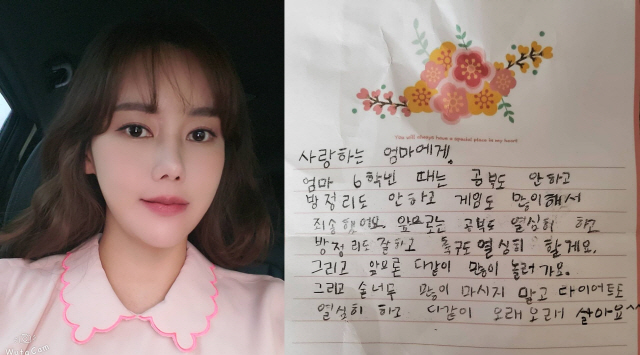 사랑하는 엄마에게.
엄마 6학년 때는 공부도 안하고
방정리도 안하고 게임도 많이해서
죄송했어요. 앞으로는 공부도 열심히 하고
방정리도 잘하고 축구도 열심히 할게요.
그리고 앞으론 다같이 많이 놀러 가요.
그리고 술너무 많이 마시지 말고 다이어트도
열심히 하고 다같이 오래오래 살아요~